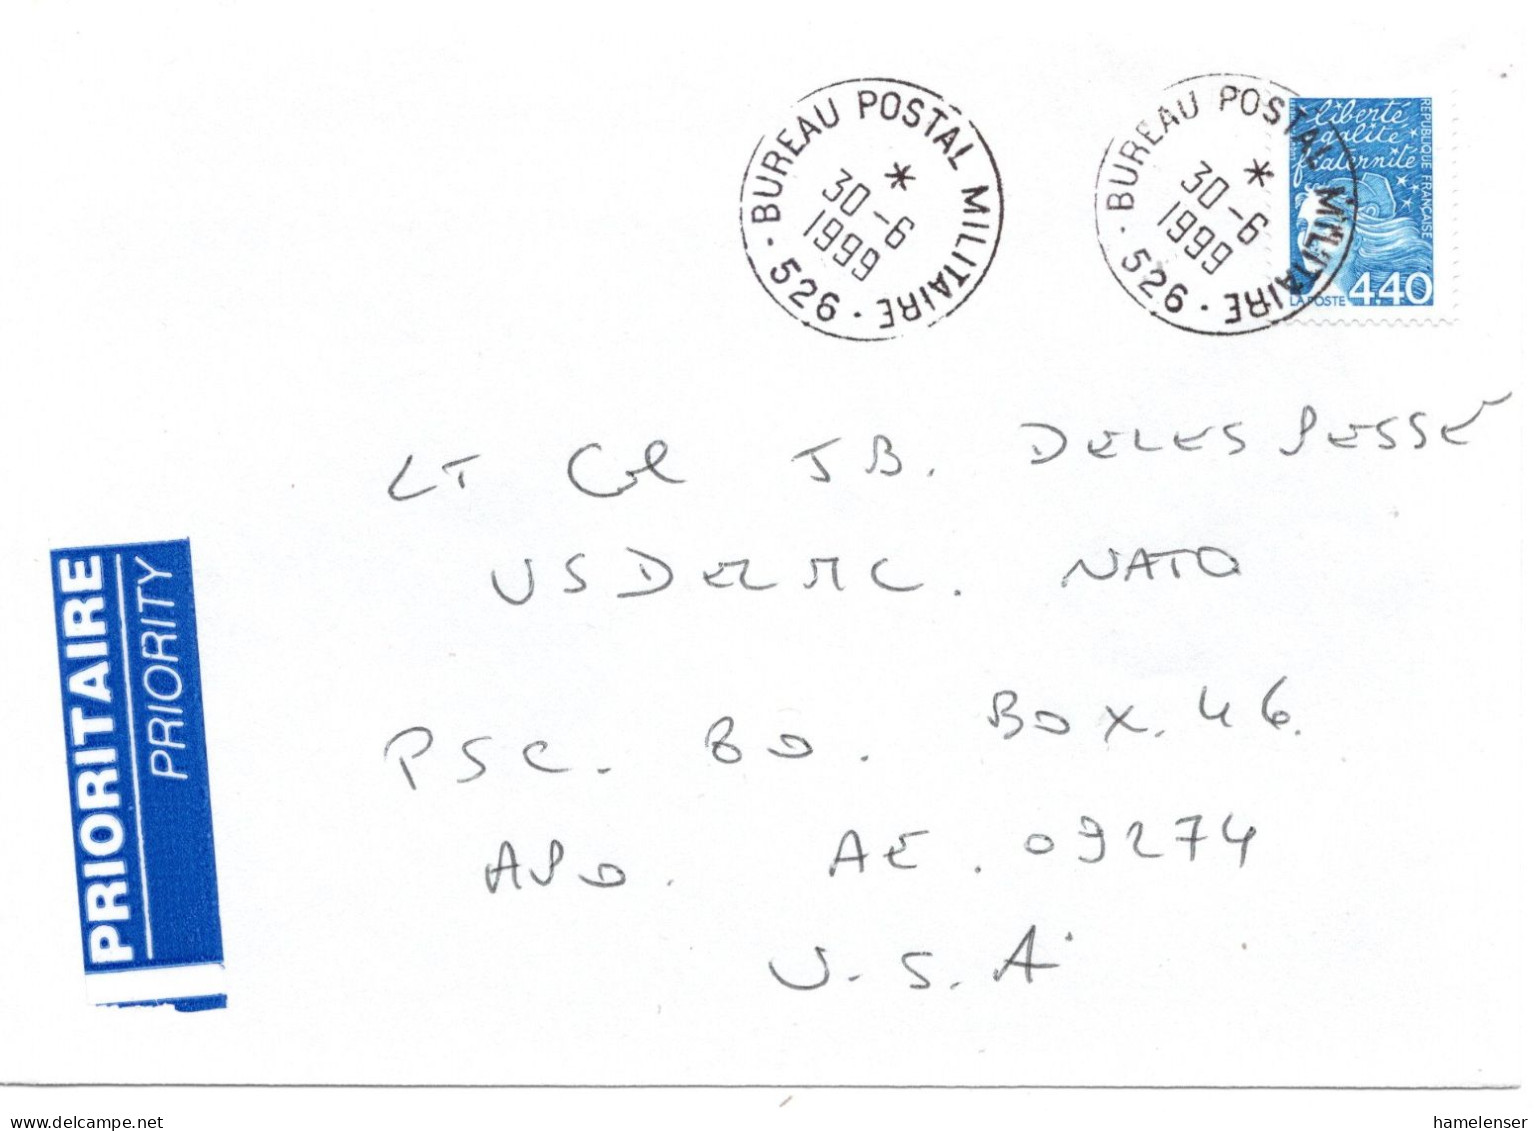 · BUREAU POSTAL MILITAIRE · 526
*
30-6
1999
· BUREAU POSTAL MILITAIRE · 526
*
30-6
1999
liberté
égalité
fraternité
REPUBLIQUE FRANÇAISE
LA POSTE 4,40
LT Col JB. DELESPESSE
USDELMC. NATO
PSC. 80. BOX. 46.
APO. AE. 09274
U.S.A
PRIORITAIRE
PRIORITY
hamelenser
hamelenser.com